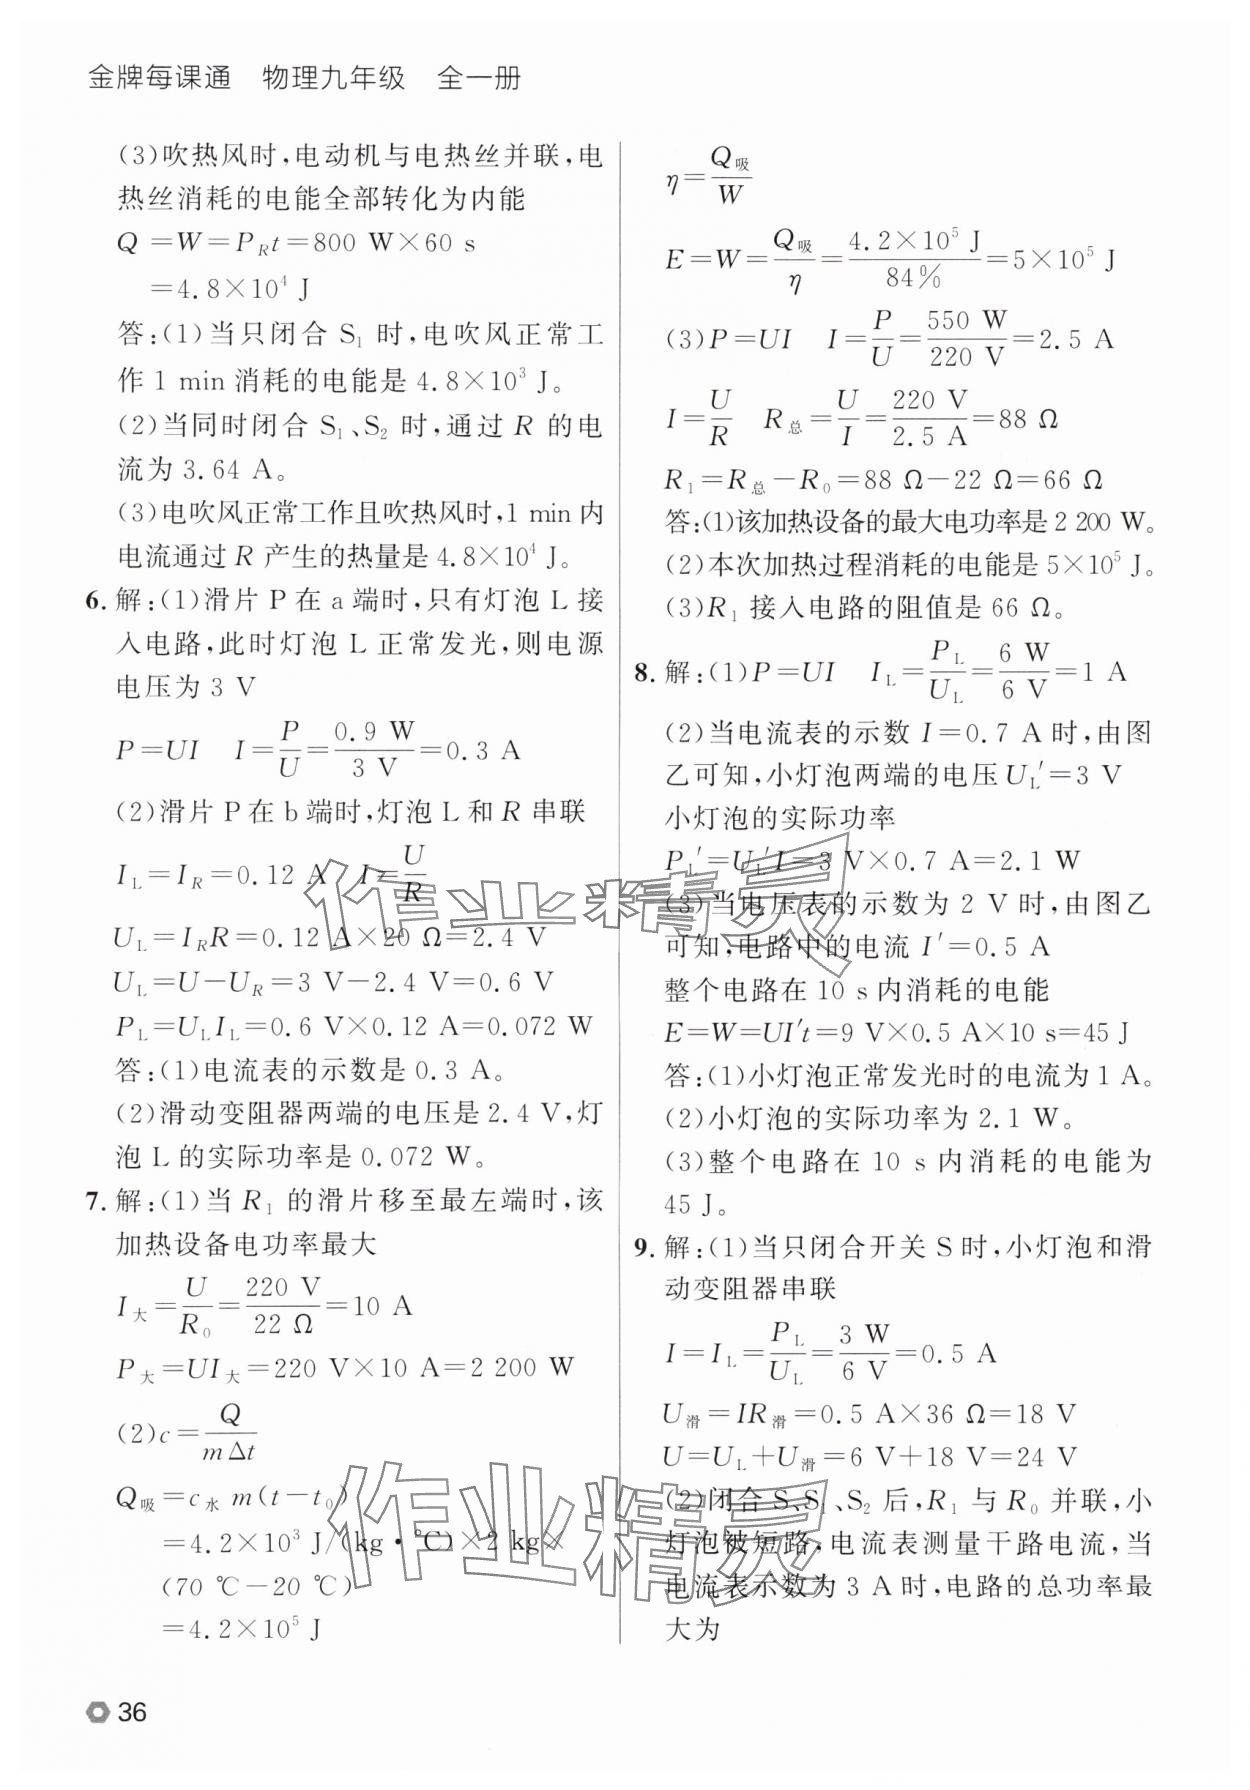 金牌每课通 物理九年级 全一册
(3)吹热风时,电动机与电热丝并联,电
热丝消耗的电能全部转化为内能
Q =W=P_R t=800 W×60 s
=4.8×10⁴ J
答:(1)当只闭合 S₁ 时,电吹风正常工
作 1 min 消耗的电能是 4.8×10³ J。
(2)当同时闭合 S₁、S₂ 时,通过 R 的电
流为 3.64 A。
(3)电吹风正常工作且吹热风时,1 min 内
电流通过 R 产生的热量是 4.8×10⁴ J。
6. 解:(1)滑片 P 在 a 端时,只有灯泡 L 接
入电路,此时灯泡 L 正常发光,则电源
电压为 3 V
P=UI I=P/U=0.9 W/3 V=0.3 A
(2)滑片 P 在 b 端时,灯泡 L 和 R 串联
I_L=I_R=0.12 A I=U/R
U_L=I_R R=0.12 A×20 Ω=2.4 V
U_L=U-U_R=3 V-2.4 V=0.6 V
P_L=U_L I_L=0.6 V×0.12 A=0.072 W
答:(1)电流表的示数是 0.3 A。
(2)滑动变阻器两端的电压是 2.4 V,灯
泡 L 的实际功率是 0.072 W。
7. 解:(1)当 R₁ 的滑片移至最左端时,该
加热设备电功率最大
I大=U/R₀=220 V/22 Ω=10 A
P大=UI大=220 V×10 A=2 200 W
(2)c=Q/mΔt
Q吸=c水 m(t-t₀)
=4.2×10³ J/(kg·℃)×2 kg×
(70 ℃-20 ℃)
=4.2×10⁵ J
η=Q吸/W
E=W=Q吸/η=4.2×10⁵ J/84%=5×10⁵ J
(3)P=UI I=P/U=550 W/220 V=2.5 A
I=U/R R总=U/I=220 V/2.5 A=88 Ω
R₁=R总-R₀=88 Ω-22 Ω=66 Ω
答:(1)该加热设备的最大电功率是 2 200 W。
(2)本次加热过程消耗的电能是 5×10⁵ J。
(3)R₁ 接入电路的阻值是 66 Ω。
8. 解:(1)P=UI I_L=P_L/U_L=6 W/6 V=1 A
(2)当电流表的示数 I=0.7 A 时,由图
乙可知,小灯泡两端的电压 U_L′=3 V
小灯泡的实际功率
P_L′=U_L′I=3 V×0.7 A=2.1 W
(3)当电压表的示数为 2 V 时,由图乙
可知,电路中的电流 I′=0.5 A
整个电路在 10 s 内消耗的电能
E=W=UI′t=9 V×0.5 A×10 s=45 J
答:(1)小灯泡正常发光时的电流为 1 A。
(2)小灯泡的实际功率为 2.1 W。
(3)整个电路在 10 s 内消耗的电能为
45 J。
9. 解:(1)当只闭合开关 S 时,小灯泡和滑
动变阻器串联
I=I_L=P_L/U_L=3 W/6 V=0.5 A
U滑=IR滑=0.5 A×36 Ω=18 V
U=U_L+U滑=6 V+18 V=24 V
(2)闭合 S、S₁、S₂ 后,R₁ 与 R₀ 并联,小
灯泡被短路,电流表测量干路电流,当
电流表示数为 3 A 时,电路的总功率最
大为
作业精灵
作业精灵
36